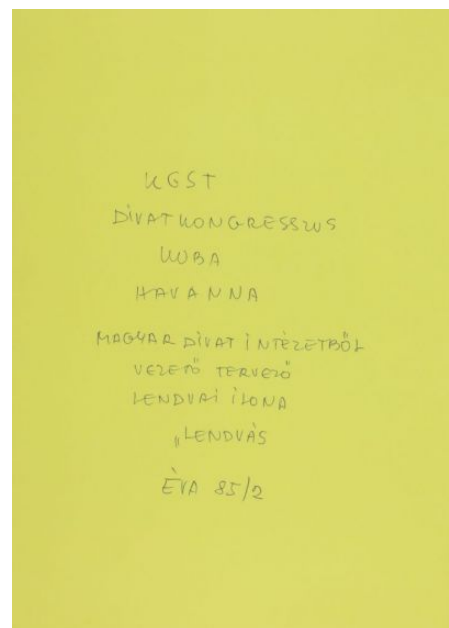 KGST
DIVATKONGRESSZUS
KUBA
HAVANNA
MAGYAR DIVAT INTÈZETBŐL
VEZETŐ TERVEZŐ
LENDVAI ILONA
„LENDVÁS
ÈVA 85/2